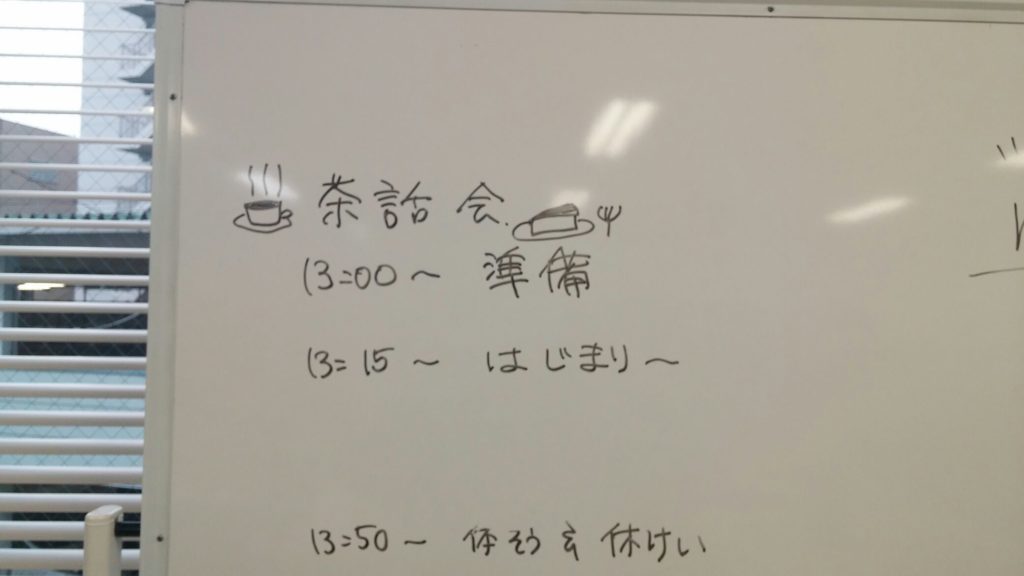 茶話会
13:00〜 準備
13:15〜 はじまり〜
13:50〜 体そう& 休けい